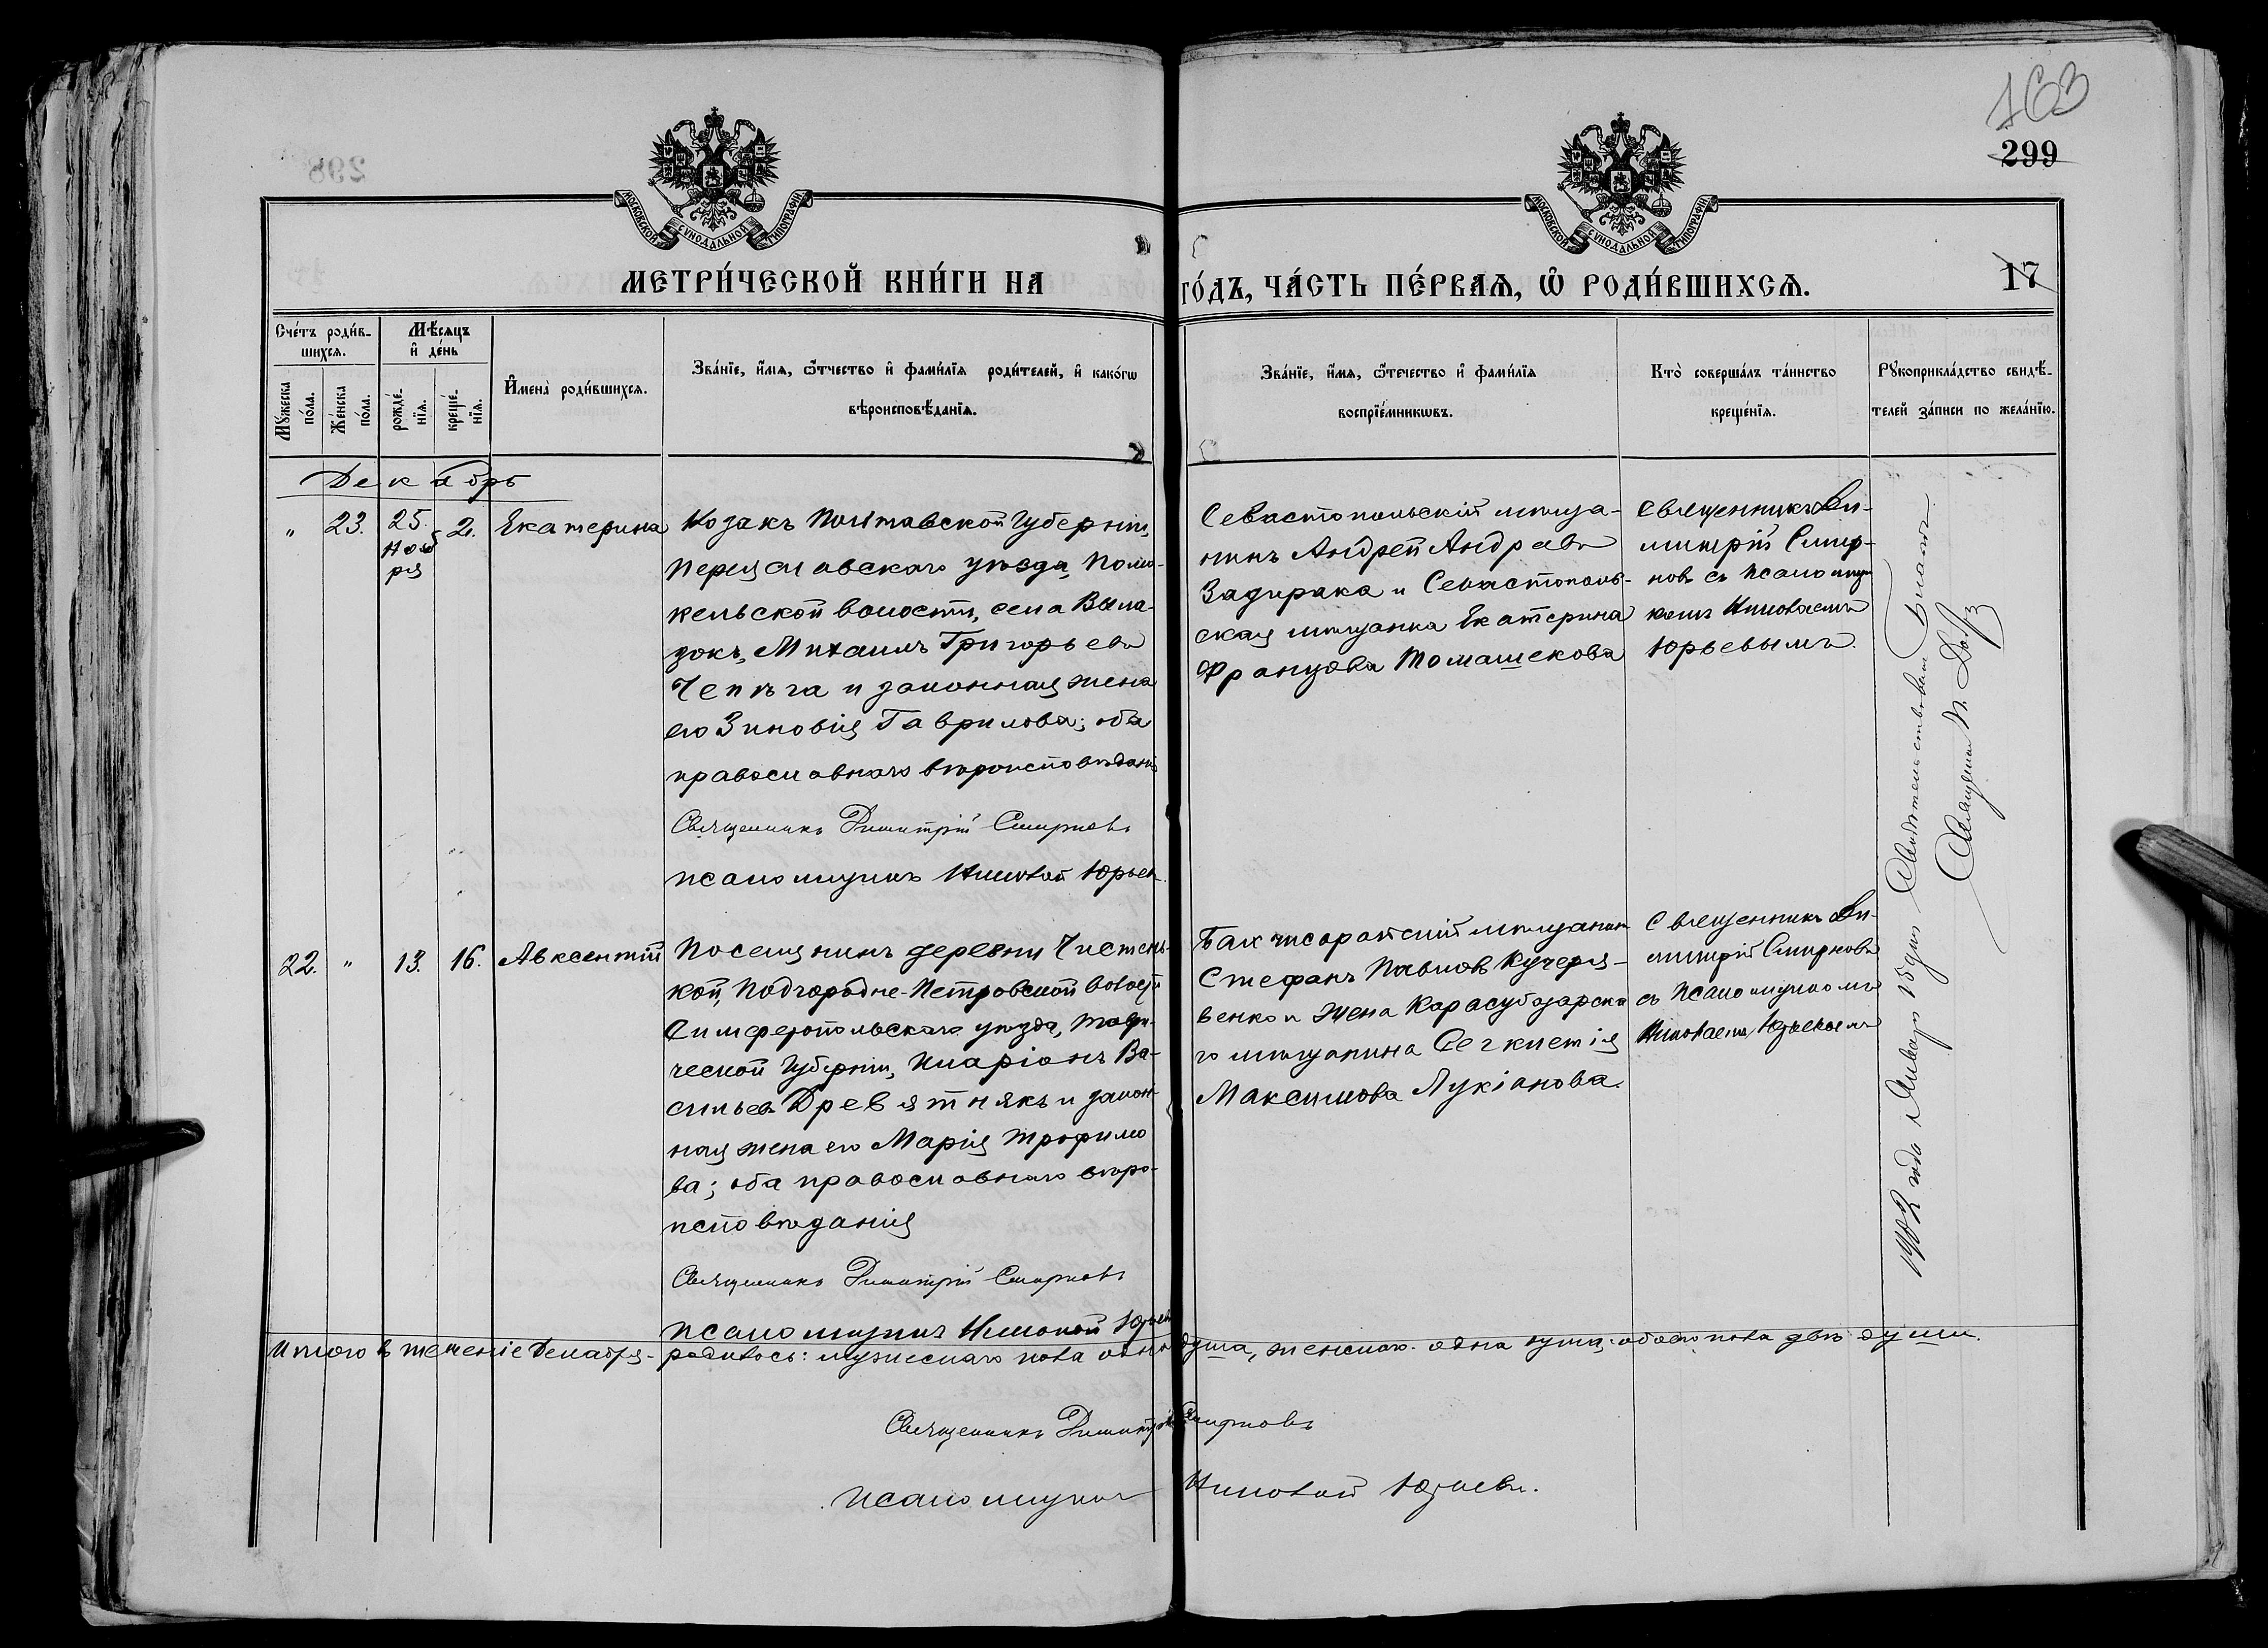 163
299
298
МОСКОВСКОЙ СѴНОДАЛЬНОЙ ТИПОГРАФІИ
МОСКОВСКОЙ СѴНОДАЛЬНОЙ ТИПОГРАФІИ
МЕТРИ́ЧЕСКОЙ КНИ́ГИ НА ГО́ДЪ, ЧА́СТЬ ПЕ́РВАѦ, Ѡ҆ РОДИ́ВШИХСѦ.
17
Сче́тъ роди́в-
шихсѧ.
Мꙋ́жеска по́ла.
Же́нска по́ла.
Мѣ́сѧцъ
и҆ де́нь
рожде́-
нїѧ.
креще́-
нїѧ.
И҆мена̀ роди́вшихсѧ.
Зва́нїе, и҆́мѧ, ѻ҆́тчество и҆ фами́лїѧ роди́телей, и҆ како́гѡ
вѣроисповѣ́данїѧ.
Зва́нїе, и҆́мѧ, ѻ҆́течество и҆ фами́лїѧ
воспрїе́мникѡвъ.
Кто̀ соверша́лъ та́инство
креще́нїѧ.
Рꙋкоприкла́дство свидѣ́-
телей за́писи по жела́нїю.
Декабрь
" 23. 25 Ноября 2. Екатерина
Козакъ Полтавской Губерніи,
Переяславскаго уѣзда, Помо-
кельской волости, села Выпа-
зокъ, Михаилъ Григорьевъ
Чепѣга и законная жена
его Зиновія Гаврилова; оба
православнаго вѣроисповѣданія
Священникъ Димитрій Смирновъ
Псаломщикъ Николай Юрьевъ
Севастопольскій мѣща-
нинъ Андрей Андреевъ
Задирака и Севастополь-
ская мѣщанка Екатерина
Францова Томашекова
Священникъ Ди-
митрій Смир-
новъ съ Псаломщи
комъ Николаемъ
Юрьевымъ.
22. " 13. 16. Авксентій
Поселянинъ деревни Чистень-
кой, Подгородне-Петровской волости
Симферопольскаго уѣзда, Таври-
ческой Губерніи, Иларіонъ Ва-
сильевъ Древятнякъ и закон-
ная жена его Марія Трофимо
ва; оба православнаго вѣро-
исповѣданія
Священникъ Димитрій Смирновъ
Псаломщикъ Николай Юрьевъ
Бахчисарайскій мѣщанинъ
Стефанъ Павловъ Кучеря-
венко и жена Карасубазарска
го мѣщанина
Максимова Лукіанова.
Священникъ Ди-
митрій Смирновъ
съ Псаломщикомъ
Николаемъ Юрьевымъ
1902 года Января 15 дня Свидетельствовалъ Благоч.
Священникъ
Итого въ теченіе Декабря родилось: мужескаго пола одна душа, женскаго одна душа, обоего пола двѣ души.
Священникъ Димитрій Смирновъ
Псаломщикъ Николай Юрьевъ.